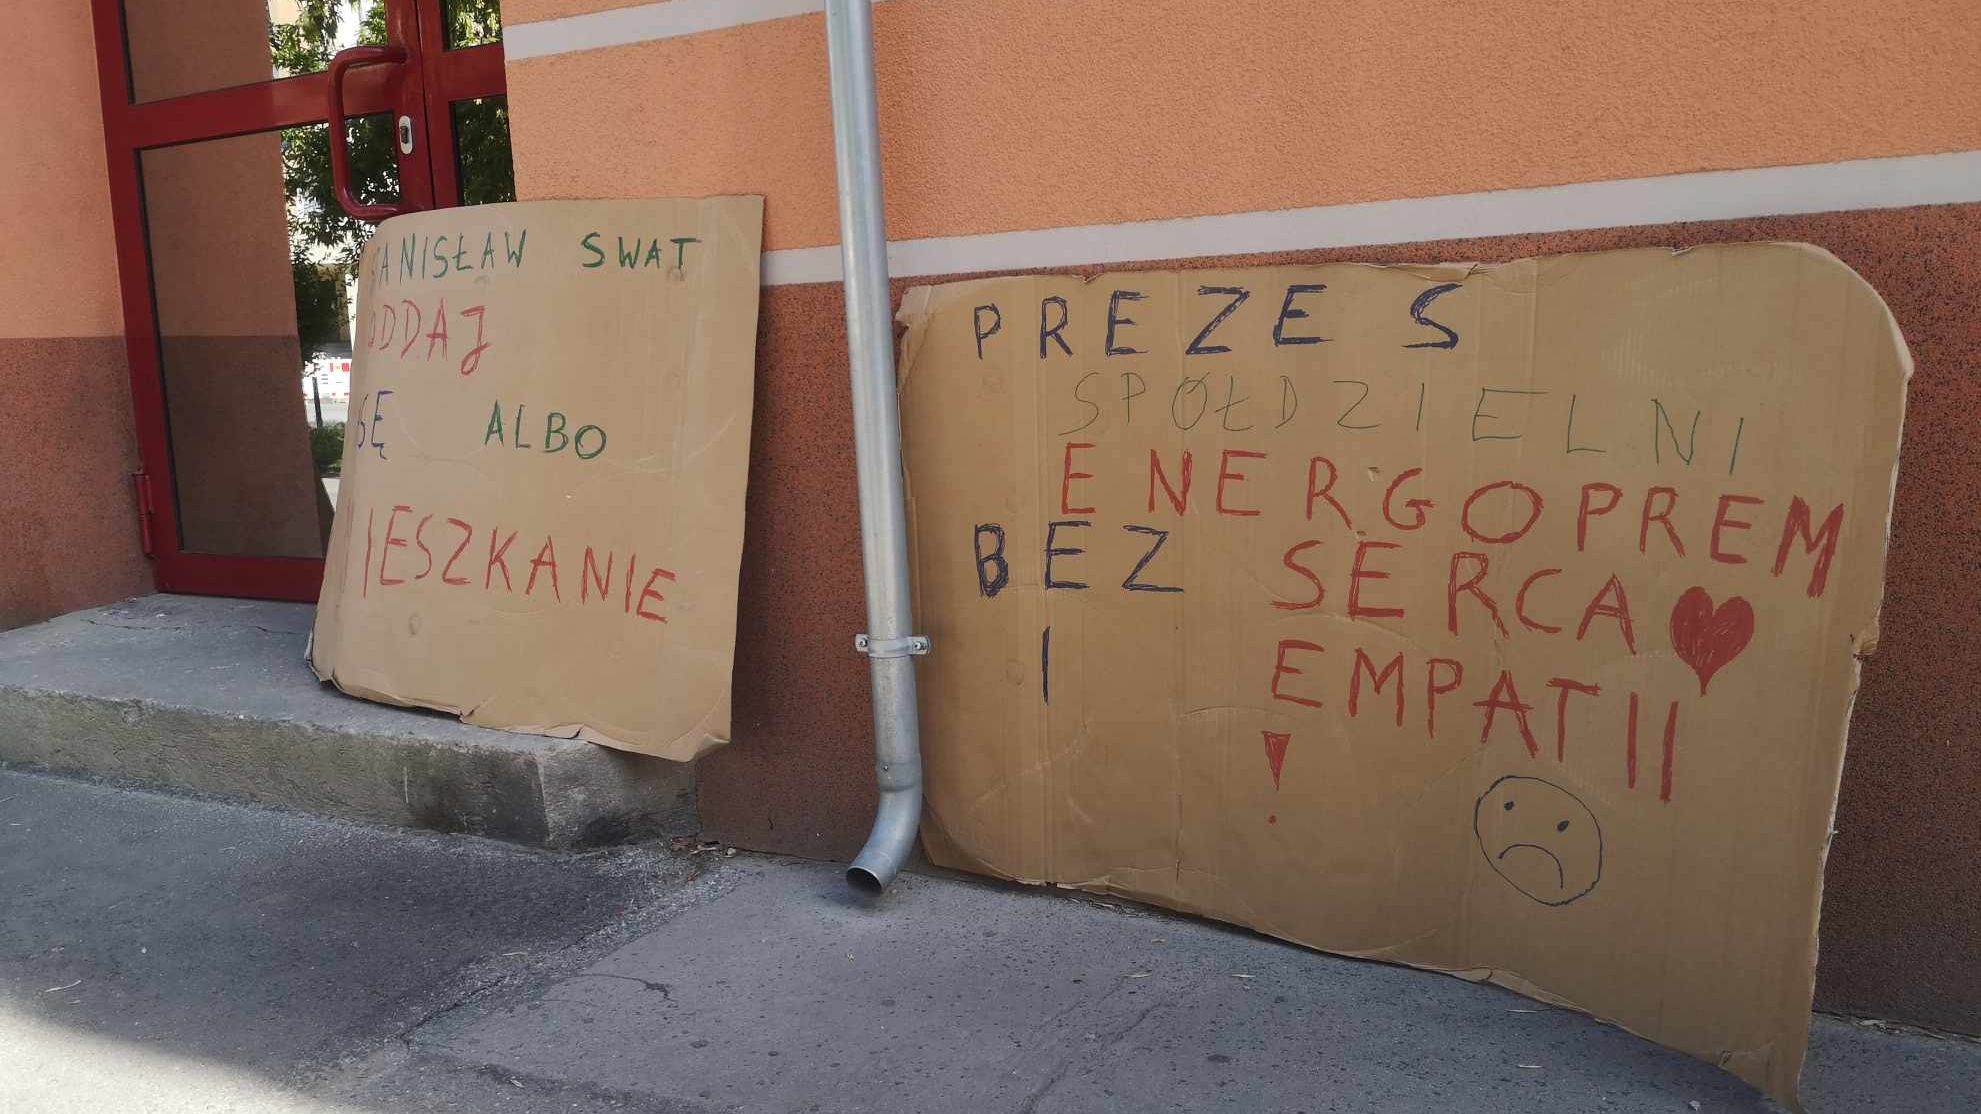 STANISŁAW SWAT
ODDAJ
ALBO
MIESZKANIE
PREZES
SPÓŁDZIELNI
ENERGOPREM
BEZ SERCA
I EMPATII
!